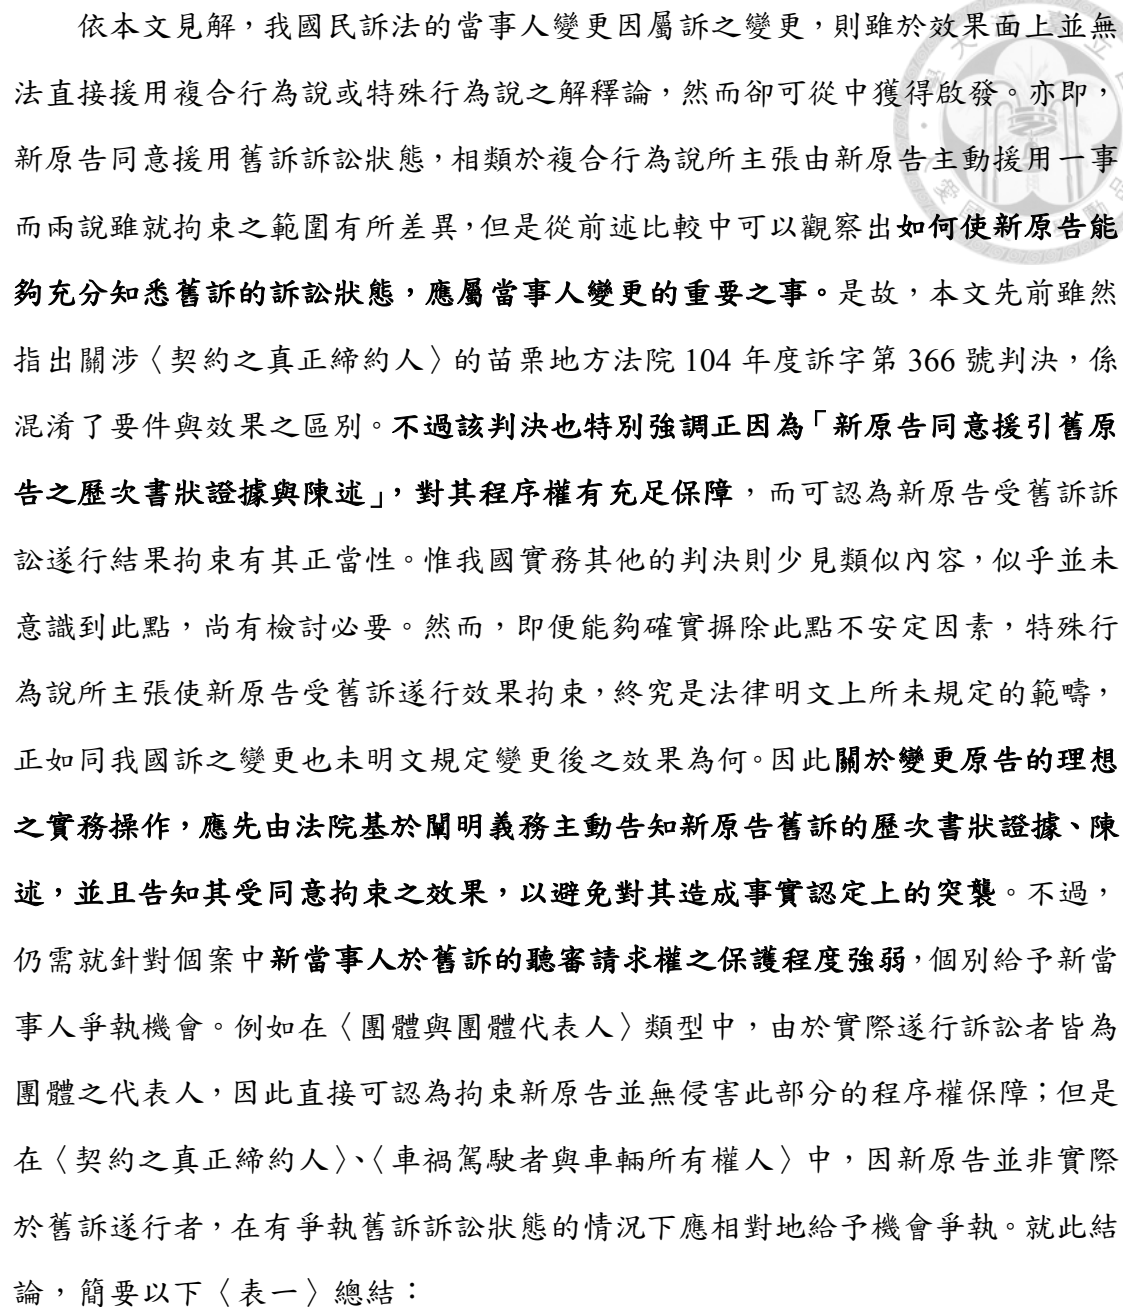 依本文見解，我國民訴法的當事人變更因屬訴之變更，則雖於效果面上並無
法直接援用複合行為說或特殊行為說之解釋論，然而卻可從中獲得啟發。亦即，
新原告同意援用舊訴訴訟狀態，相類於複合行為說所主張由新原告主動援用一事
而兩說雖就拘束之範圍有所差異，但是從前述比較中可以觀察出如何使新原告能
夠充分知悉舊訴的訴訟狀態，應屬當事人變更的重要之事。是故，本文先前雖然
指出關涉〈契約之真正締約人〉的苗栗地方法院 104 年度訴字第 366 號判決，係
混淆了要件與效果之區別。不過該判決也特別強調正因為「新原告同意援引舊原
告之歷次書狀證據與陳述」，對其程序權有充足保障，而可認為新原告受舊訴訴
訟遂行結果拘束有其正當性。惟我國實務其他的判決則少見類似內容，似乎並未
意識到此點，尚有檢討必要。然而，即便能夠確實摒除此點不安定因素，特殊行
為說所主張使新原告受舊訴遂行效果拘束，終究是法律明文上所未規定的範疇，
正如同我國訴之變更也未明文規定變更後之效果為何。因此關於變更原告的理想
之實務操作，應先由法院基於闡明義務主動告知新原告舊訴的歷次書狀證據、陳
述，並且告知其受同意拘束之效果，以避免對其造成事實認定上的突襲。不過，
仍需就針對個案中新當事人於舊訴的聽審請求權之保護程度強弱，個別給予新當
事人爭執機會。例如在〈團體與團體代表人〉類型中，由於實際遂行訴訟者皆為
團體之代表人，因此直接可認為拘束新原告並無侵害此部分的程序權保障；但是
在〈契約之真正締約人〉、〈車禍駕駛者與車輛所有權人〉中，因新原告並非實際
於舊訴遂行者，在有爭執舊訴訴訟狀態的情況下應相對地給予機會爭執。就此結
論，簡要以下〈表一〉總結：